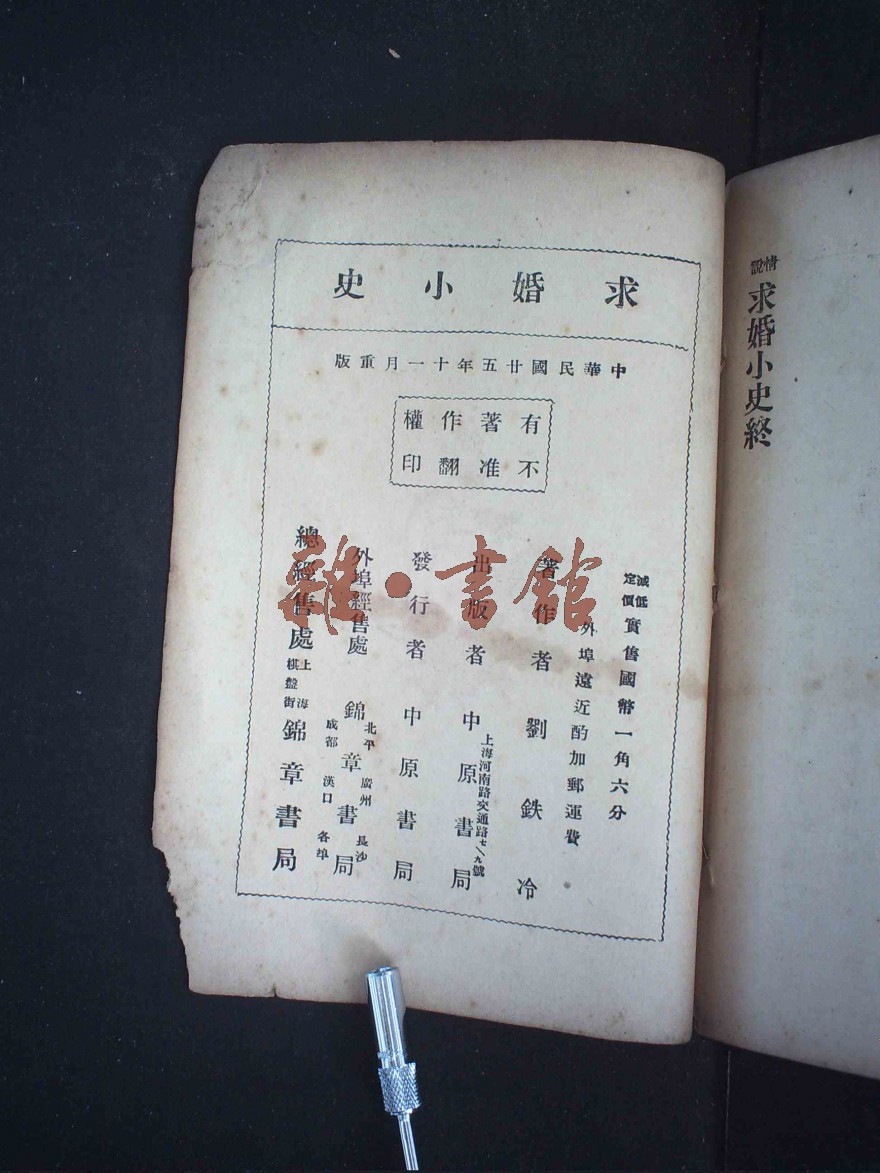 情說
求婚小史終
求婚小史
中華民國廿五年十一月重版
有著作權
不准翻印
減低定價實售國幣一角六分
外埠遠近酌加郵運費
著作者 劉鉄冷
出版者 中原書局
上海河南路交通路七/九號
發行者 中原書局
外埠經售處 錦章書局
北平 廣州 長沙
成都 漢口 各埠
總經售處 上海棋盤街 錦章書局
雜·書館